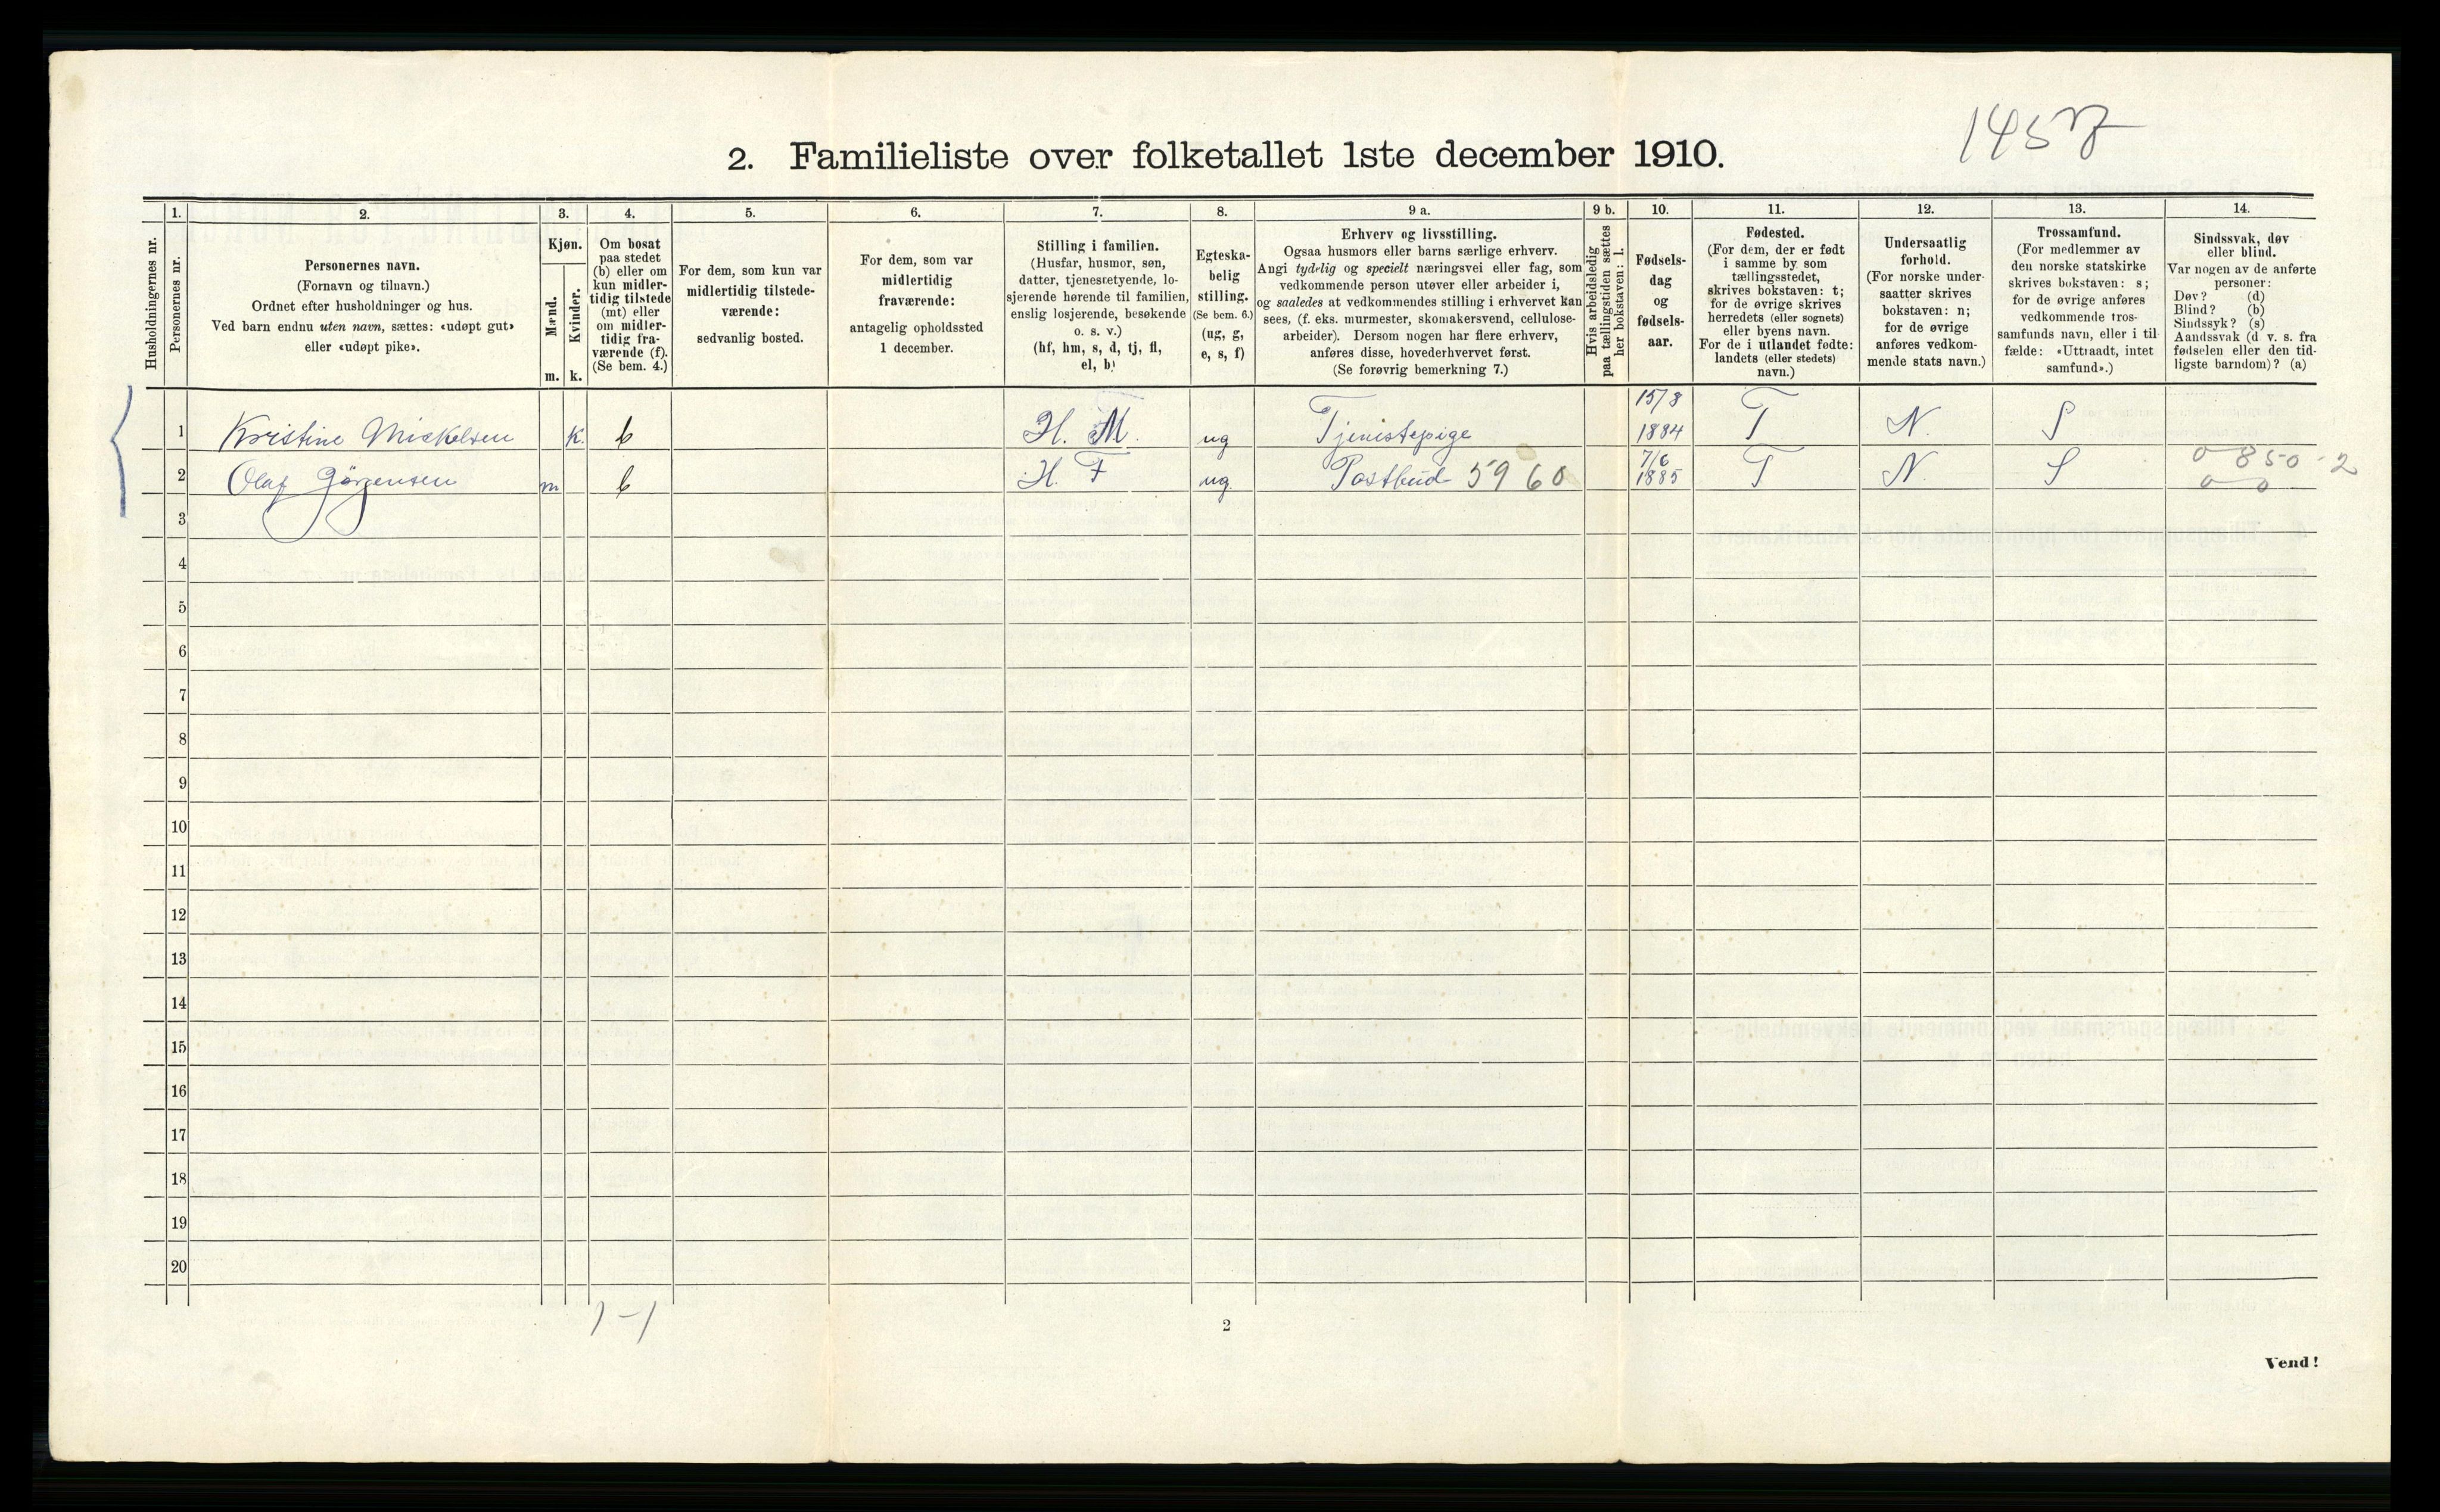 1457
2. Familieliste over folketallet 1ste december 1910.
Husholdningernes nr.
1.
Personernes nr.
2.
Personernes navn.
(Fornavn og tilnavn.)
Ordnet efter husholdninger og hus.
Ved barn endnu uten navn, sættes: «udøpt gut»
eller «udøpt pike».
3.
Kjøn.
Mænd.
Kvinder.
m. k.
4.
Om bosat
paa stedet
(b) eller om
kun midler-
tidig tilstede
(mt) eller
om midler-
tidig fra-
værende (f).
(Se bem. 4.)
5.
For dem, som kun var
midlertidig tilstede-
værende:
sedvanlig bosted.
6.
For dem, som var
midlertidig
fraværende:
antagelig opholdssted
1 december.
7.
Stilling i familien.
(Husfar, husmor, søn,
datter, tjenestetyende, lo-
sjerende hørende til familien,
enslig losjerende, besøkende
o. s. v.)
(hf, hm, s, d, tj, fl,
el, b)
8.
Egteska-
belig
stilling.
(Se bem. 6.)
(ug, g,
e, s, f)
9 a.
Erhverv og livsstilling.
Ogsaa husmors eller barns særlige erhverv.
Angi tydelig og specielt næringsvei eller fag, som
vedkommende person utøver eller arbeider i,
og saaledes at vedkommendes stilling i erhvervet kan
sees, (f. eks. murmester, skomakersvend, cellulose-
arbeider). Dersom nogen har flere erhverv,
anføres disse, hovederhvervet først.
(Se forøvrig bemerkning 7.)
9 b.
Hvis arbeidsledig
paa tællingstiden sættes
her bokstaven: l.
10.
Fødsels-
dag
og
fødsels-
aar.
11.
Fødested.
(For dem, der er født
i samme by som
tællingsstedet,
skrives bokstaven: t;
for de øvrige skrives
herredets (eller sognets)
eller byens navn.
For de i utlandet fødte:
landets (eller stedets)
navn.)
12.
Undersaatlig
forhold.
(For norske under-
saatter skrives
bokstaven: n;
for de øvrige
anføres vedkom-
mende stats navn.)
13.
Trossamfund.
(For medlemmer av
den norske statskirke
skrives bokstaven: s;
for de øvrige anføres
vedkommende tros-
samfunds navn, eller i til-
fælde: «Uttraadt, intet
samfund».)
14.
Sindssvak, døv
eller blind.
Var nogen av de anførte
personer:
Døv? (d)
Blind? (b)
Sindssyk? (s)
Aandssvak (d. v. s. fra
fødselen eller den tid-
ligste barndom)? (a)
1 Kristine Mickelsen K. b H. M. ug Tjenistepige 15/8 1884 T N. S
2 Olaf Jörgensen m b H. F ug. Postbud 5960 7/6 1885 T N. S 0850-2
0 0
3
4
5
6
7
8
9
10
11
12
13
14
15
16
17
18
19
20
1-1
2
Vend!